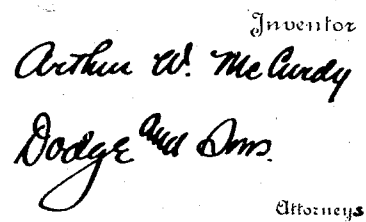 Inventor
Arthur W. McCurdy
Dodge and Sons.
Attorneys